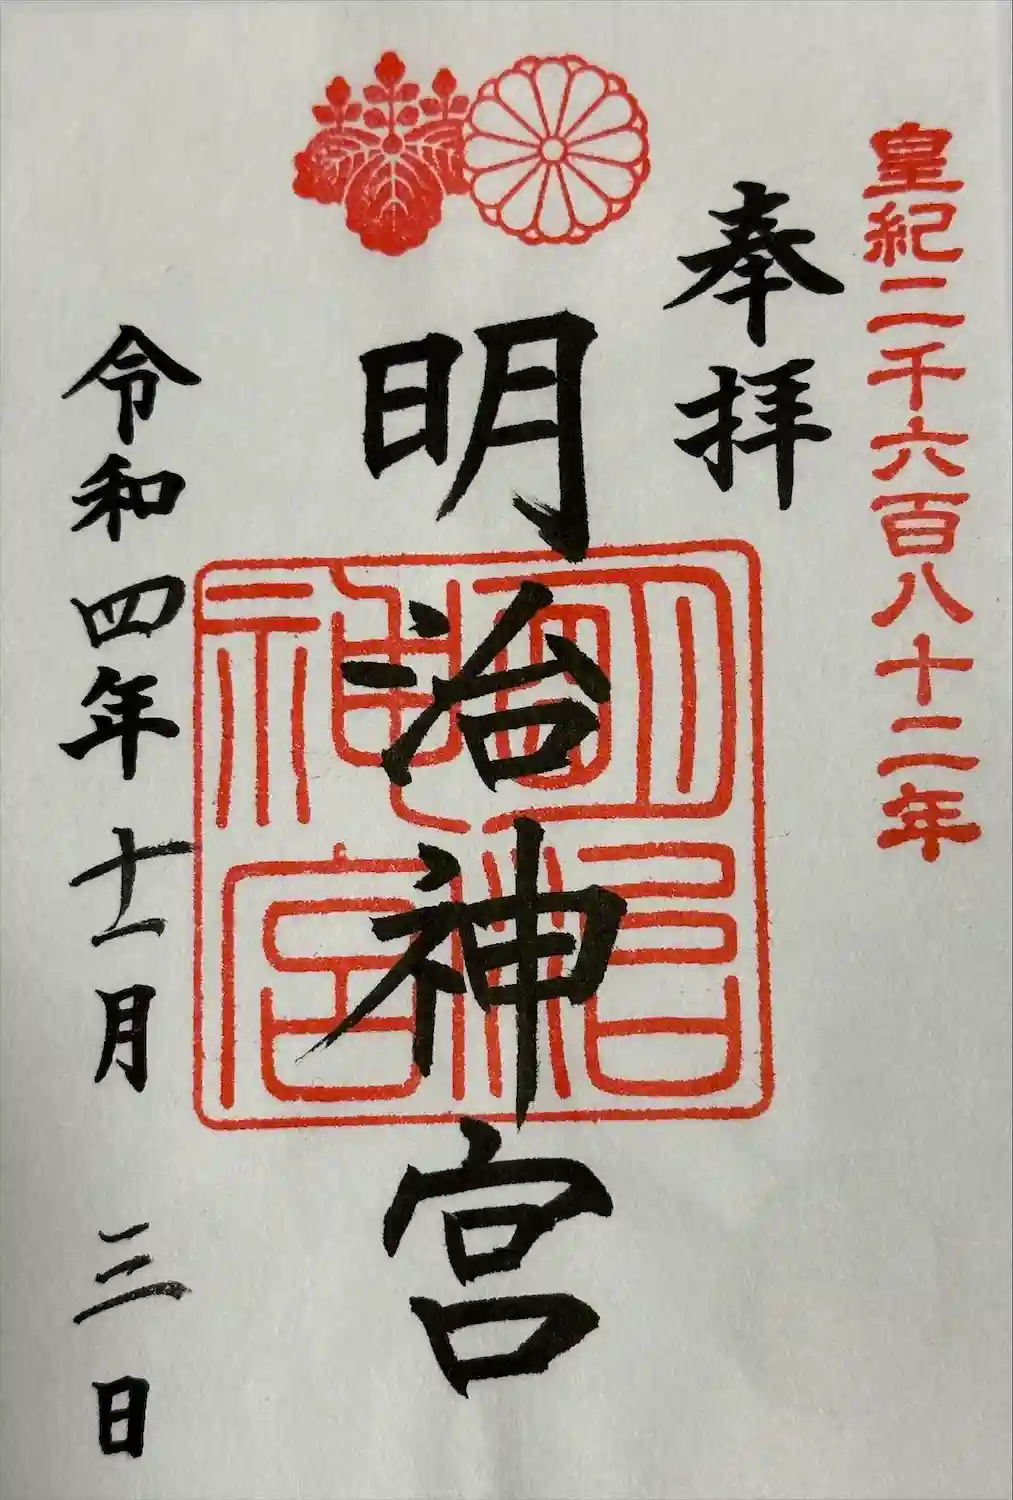 皇紀二千六百八十二年
奉拝
明治神宮
明治
神宮
令和四年十一月三日